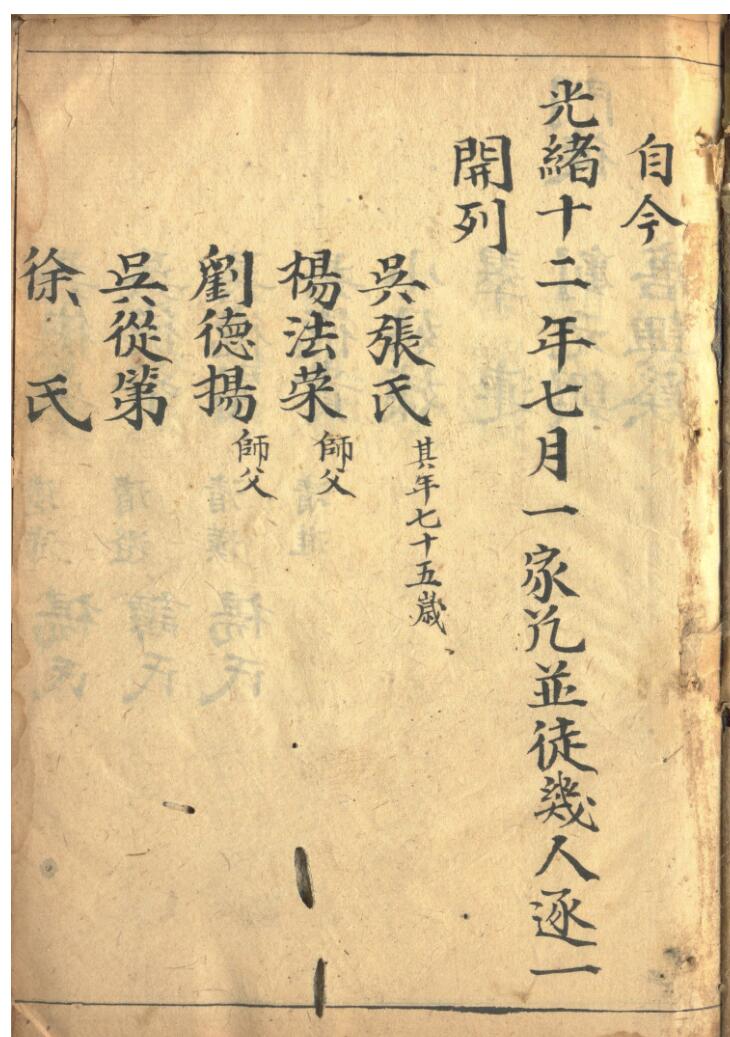 自今
光緒十二年七月一家凢並徒幾人逐一
開列
吳張氏 其年七十五嵗
楊法荣 師父
劉德揚 師父
吳從第
徐氏